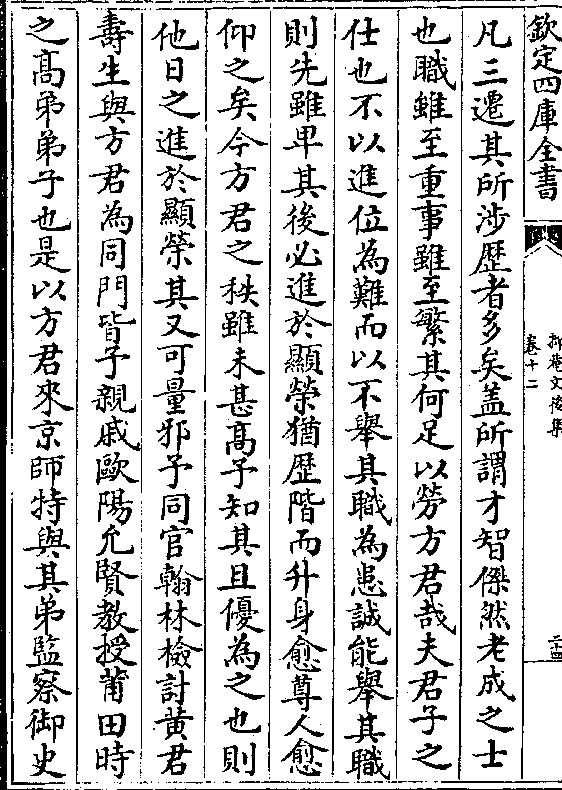 欽定四庫全書
抑菴文後集
卷十二
二十四
凡三遷其所涉歷者多矣盖所謂才智傑然老成之士
也職雖至重事雖至繁其何足以勞方君哉夫君子之
仕也不以進位為難而以不舉其職為患誠能舉其職
則先雖卑其後必進於顯榮猶歷階而升身愈尊人愈
仰之矣今方君之秩雖未甚髙予知其且優為之也則
他日之進於顯榮其又可量邪予同官翰林檢討黄君
壽生與方君為同門皆予親戚歐陽允賢教授莆田時
之髙弟弟子也是以方君來京師特與其弟監察御史